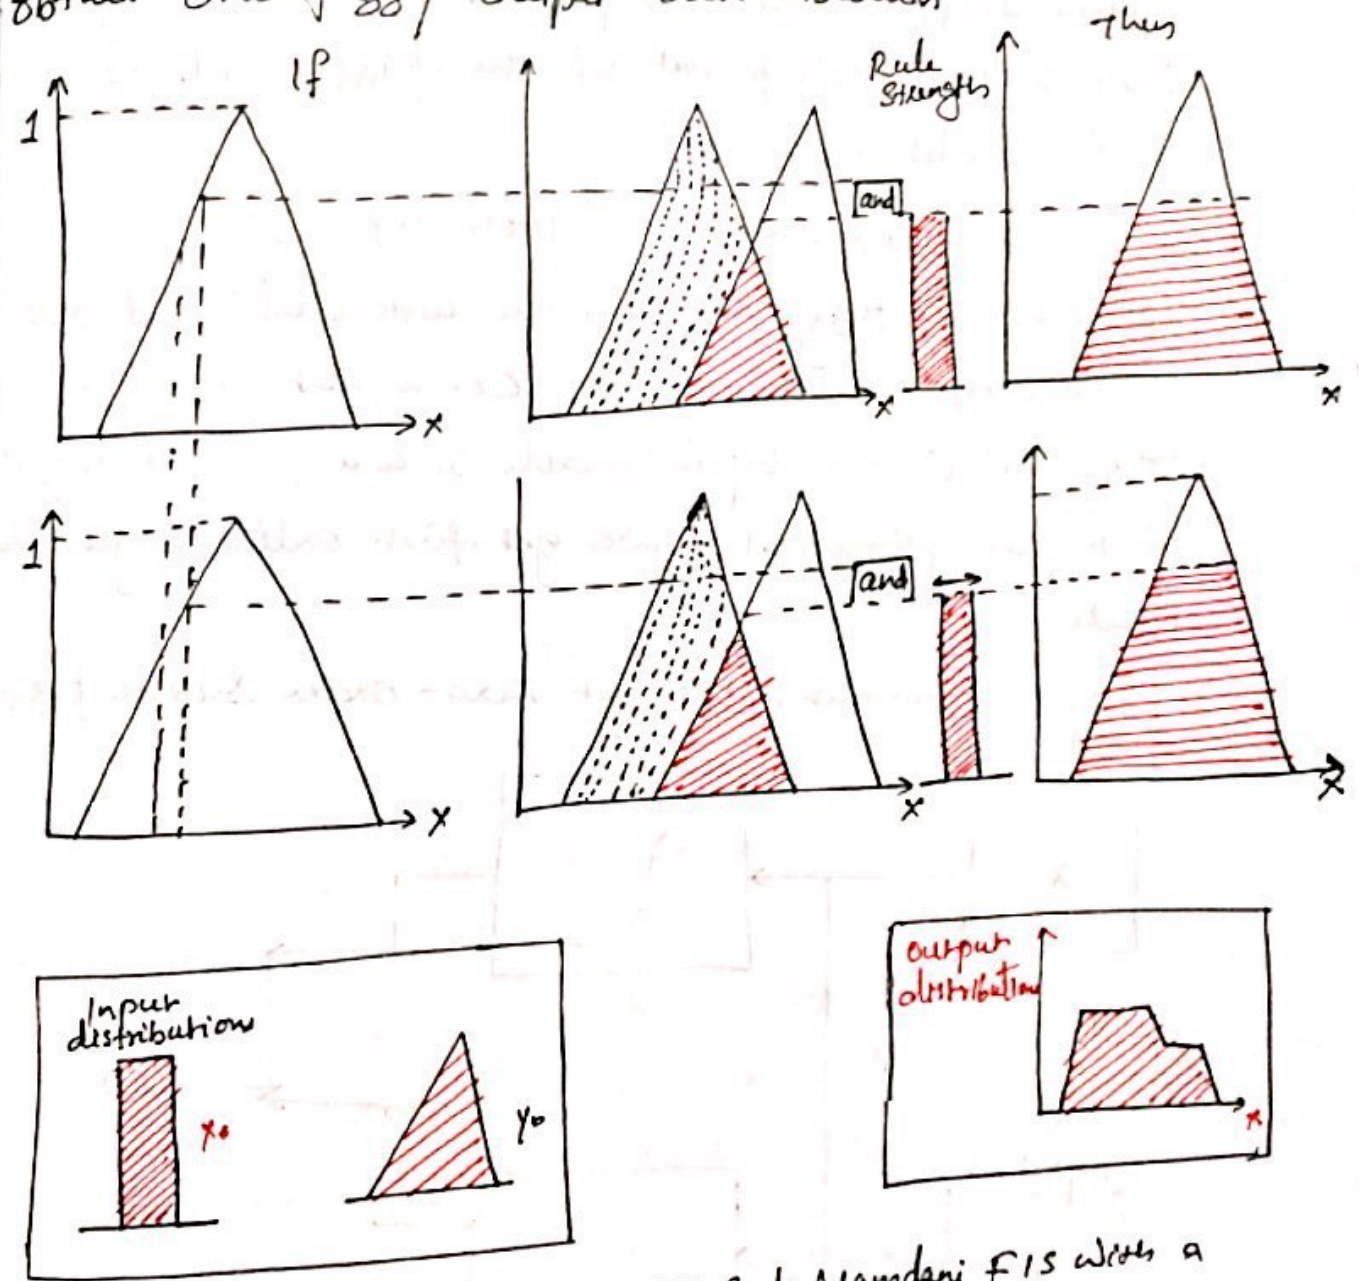 If
Then
Rule
Strength
1
[and]
x
x
x
1
[and]
x
x
x
Input
distributions
x₀
y₀
Output
distribution
x
Mamdani FIS with a